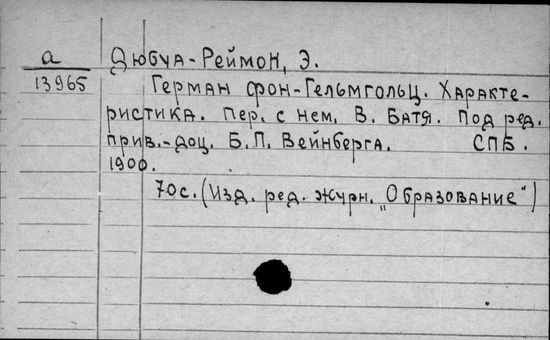 а Дюбуа-Реймон, Э.
13965 Герман фон-Гельмгольц. Характе-
ристика. Пер. с нем. В. Батя. Под ред.
прив.-доц. Б.П. Вейнберга. СПБ.
1900.
70с. (Изд. ред. журн. „Образование")